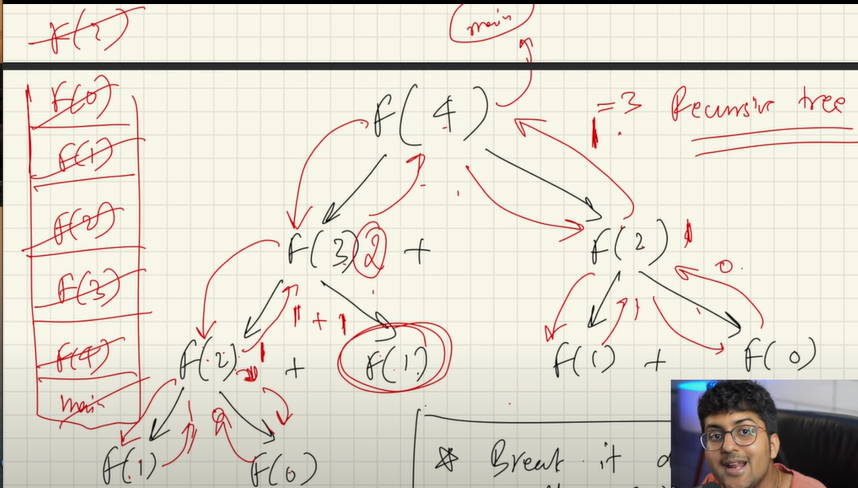 main
F(2)
F(0)
F(1)
F(2)
F(3)
F(4)
main
F(4) = 3 Recursive tree
1
F(3) 2 + F(2) 1
0
1 + 1 1
F(2) 1 + F(1) F(1) + F(0)
1 0
F(1) F(0)
* Break it